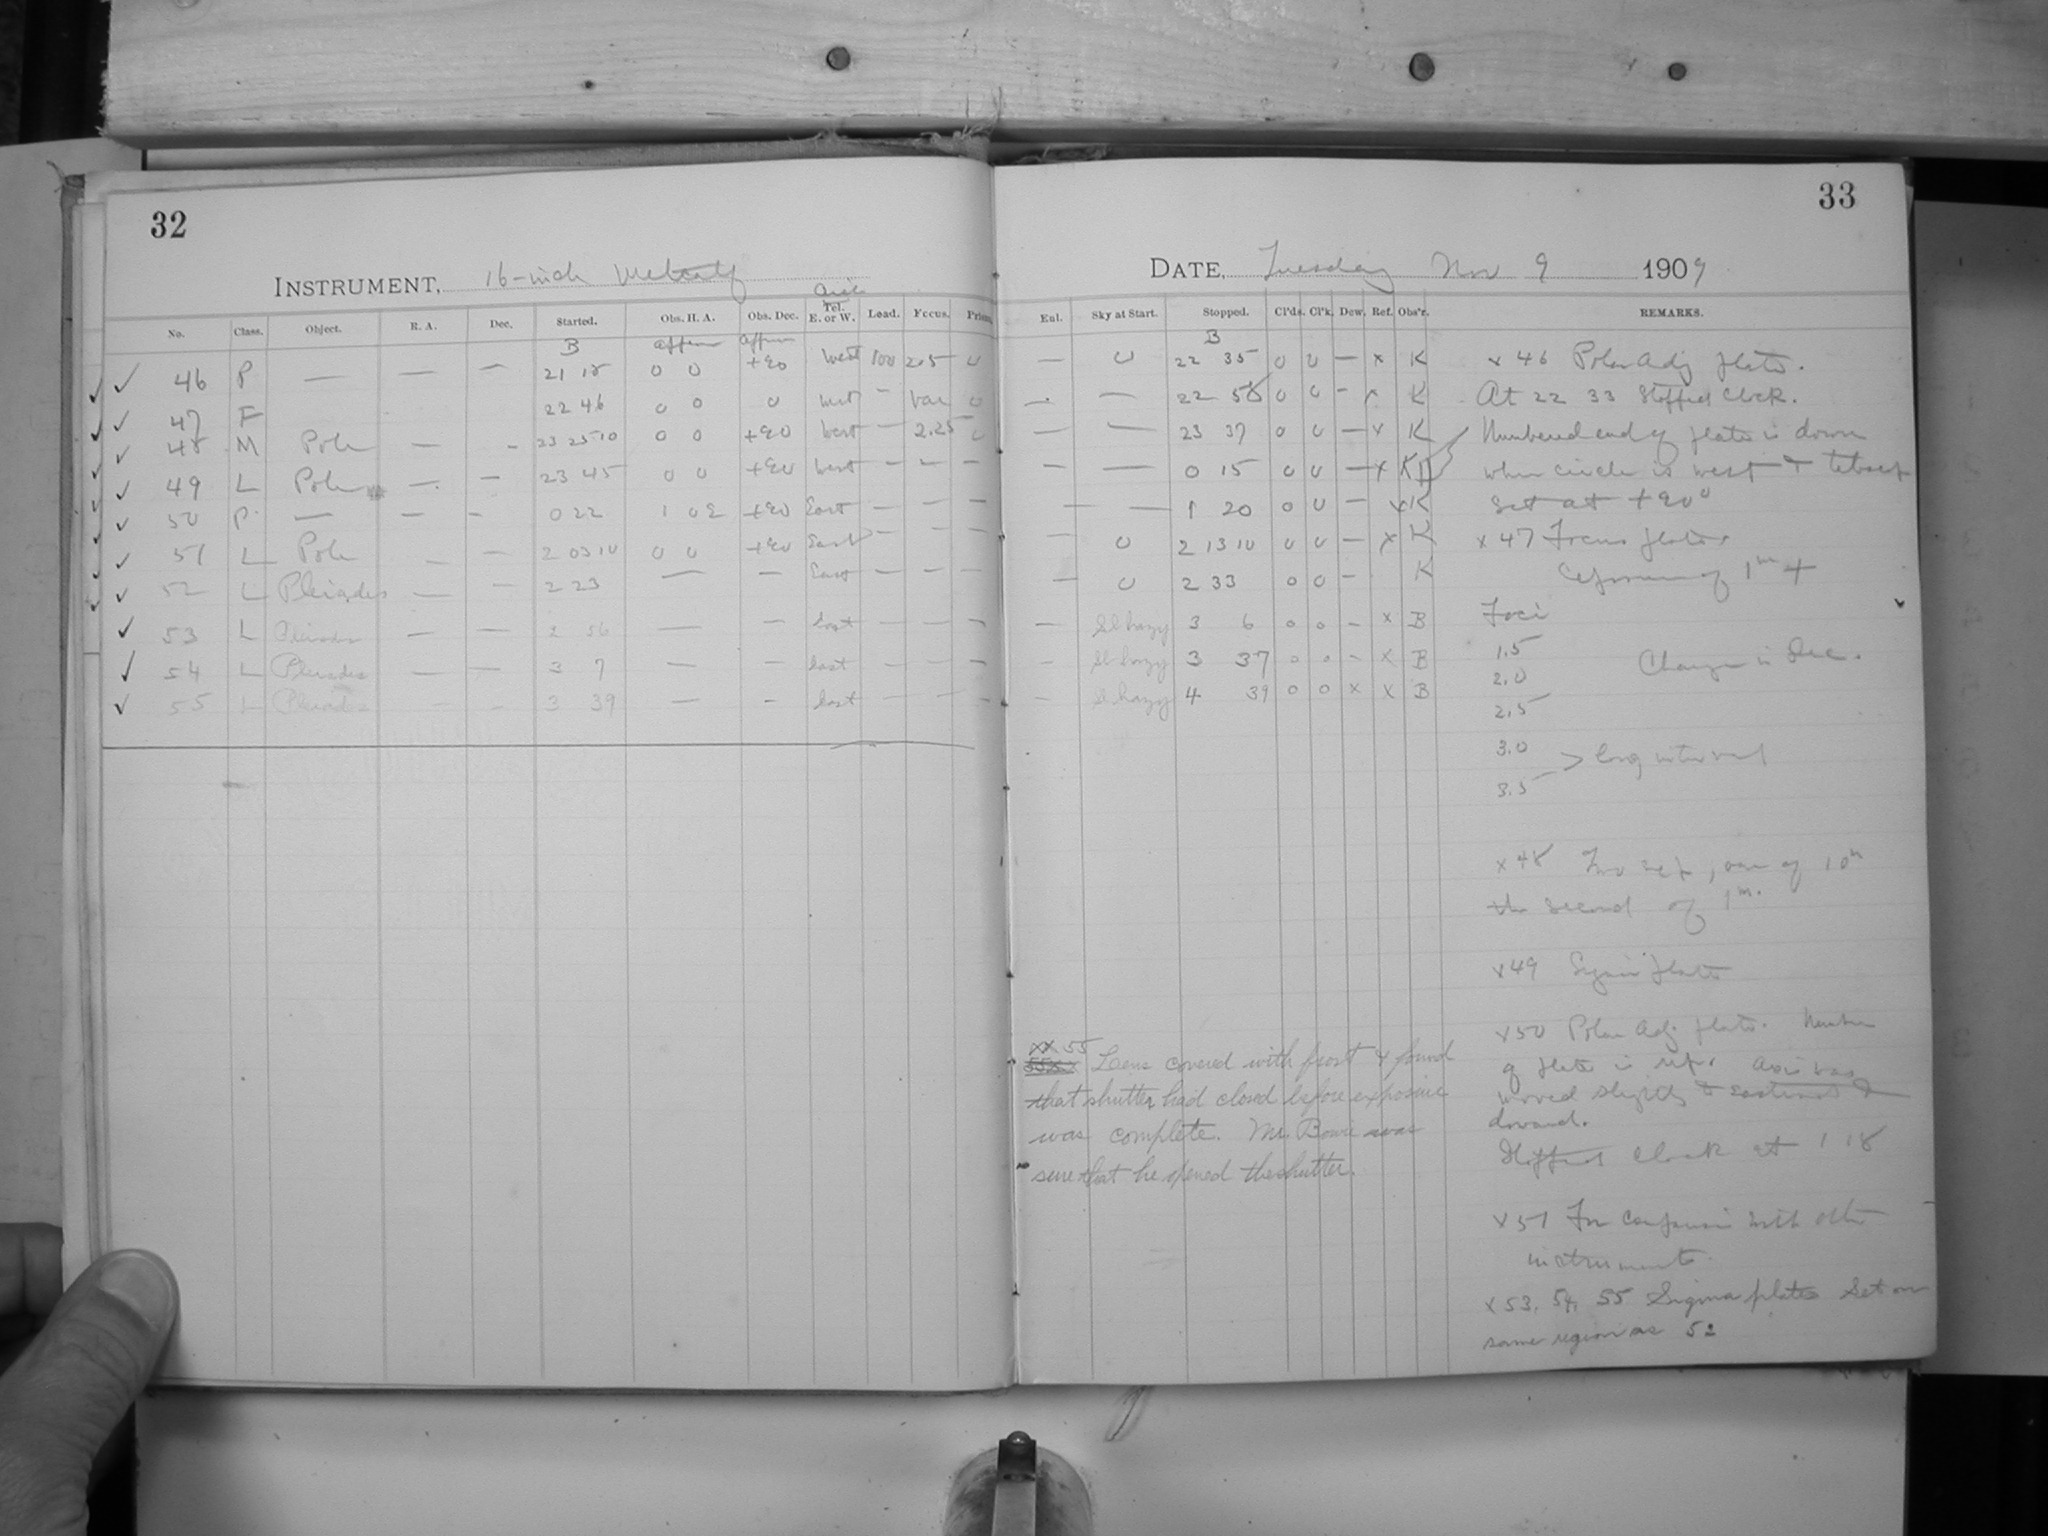 32
INSTRUMENT, 16-inch Metcalf
No. Class. Object. R. A. Dec. Started. Obs. H. A. Obs. Dec. Tel. E. or W. Load. Focus. Prism.
B approx approx
46 P — — — 21 18 0 0 +90 West 100 2.05 0
47 F 22 46 0 0 0 West — Var 0
48 M Pole — — 23 25 10 0 0 +90 West — 2.25 0
49 L Pole — — 23 45 0 0 +90 West — — —
50 P — — — 0 22 1 02 +90 East — — —
51 L Pole — — 2 03 10 0 0 +90 East — — —
52 L Pleiades — — 2 23 — — East — — —
53 L Pleiades — — 2 56 — — East — — —
54 L Pleiades — — 3 7 — — East — — —
55 L Pleiades — — 3 39 — — East — — —
33
DATE, Tuesday Nov 9 1909
Eul. Sky at Start. Stopped. Cl'ds. Cl'k. Dew. Ref. Obs'r. REMARKS.
B
— 0 22 35 0 0 — x K
— — 22 58 0 0 — x K
— — 23 37 0 0 — x K
— — 0 15 0 0 — x K
— — 1 20 0 0 — x K
— 0 2 13 10 0 0 — x K
— 0 2 33 0 0 — K
— Sl hazy 3 6 0 0 — x B
— Sl hazy 3 37 0 0 — x B
— Sl hazy 4 39 0 0 x x B
x 46 Polar Adj plate.
At 22 33 stopped clock.
Numbered end of plate is down
when circle is west &
set at +90°
x 47 Focus plate.
Exposures of 1m +
Foci
1.5
2.0 Change in Dec.
2.5
3.0
3.5 > long interval
x 48 Two exp, one of 10m
the second of 1m.
x 49 Sigma plate
x 50 Polar Adj plate. Number
of plate is up. Axis was
moved slightly to eastward &
Stopped clock at 1 18
x 51 For comparison with other
instruments.
x 53, 54, 55 Sigma plates Set on
same region as 52
xx 55
Lens covered with frost & found
that shutter had closed before exposure
was complete. Mr. Bowie was
sure that he opened the shutter.